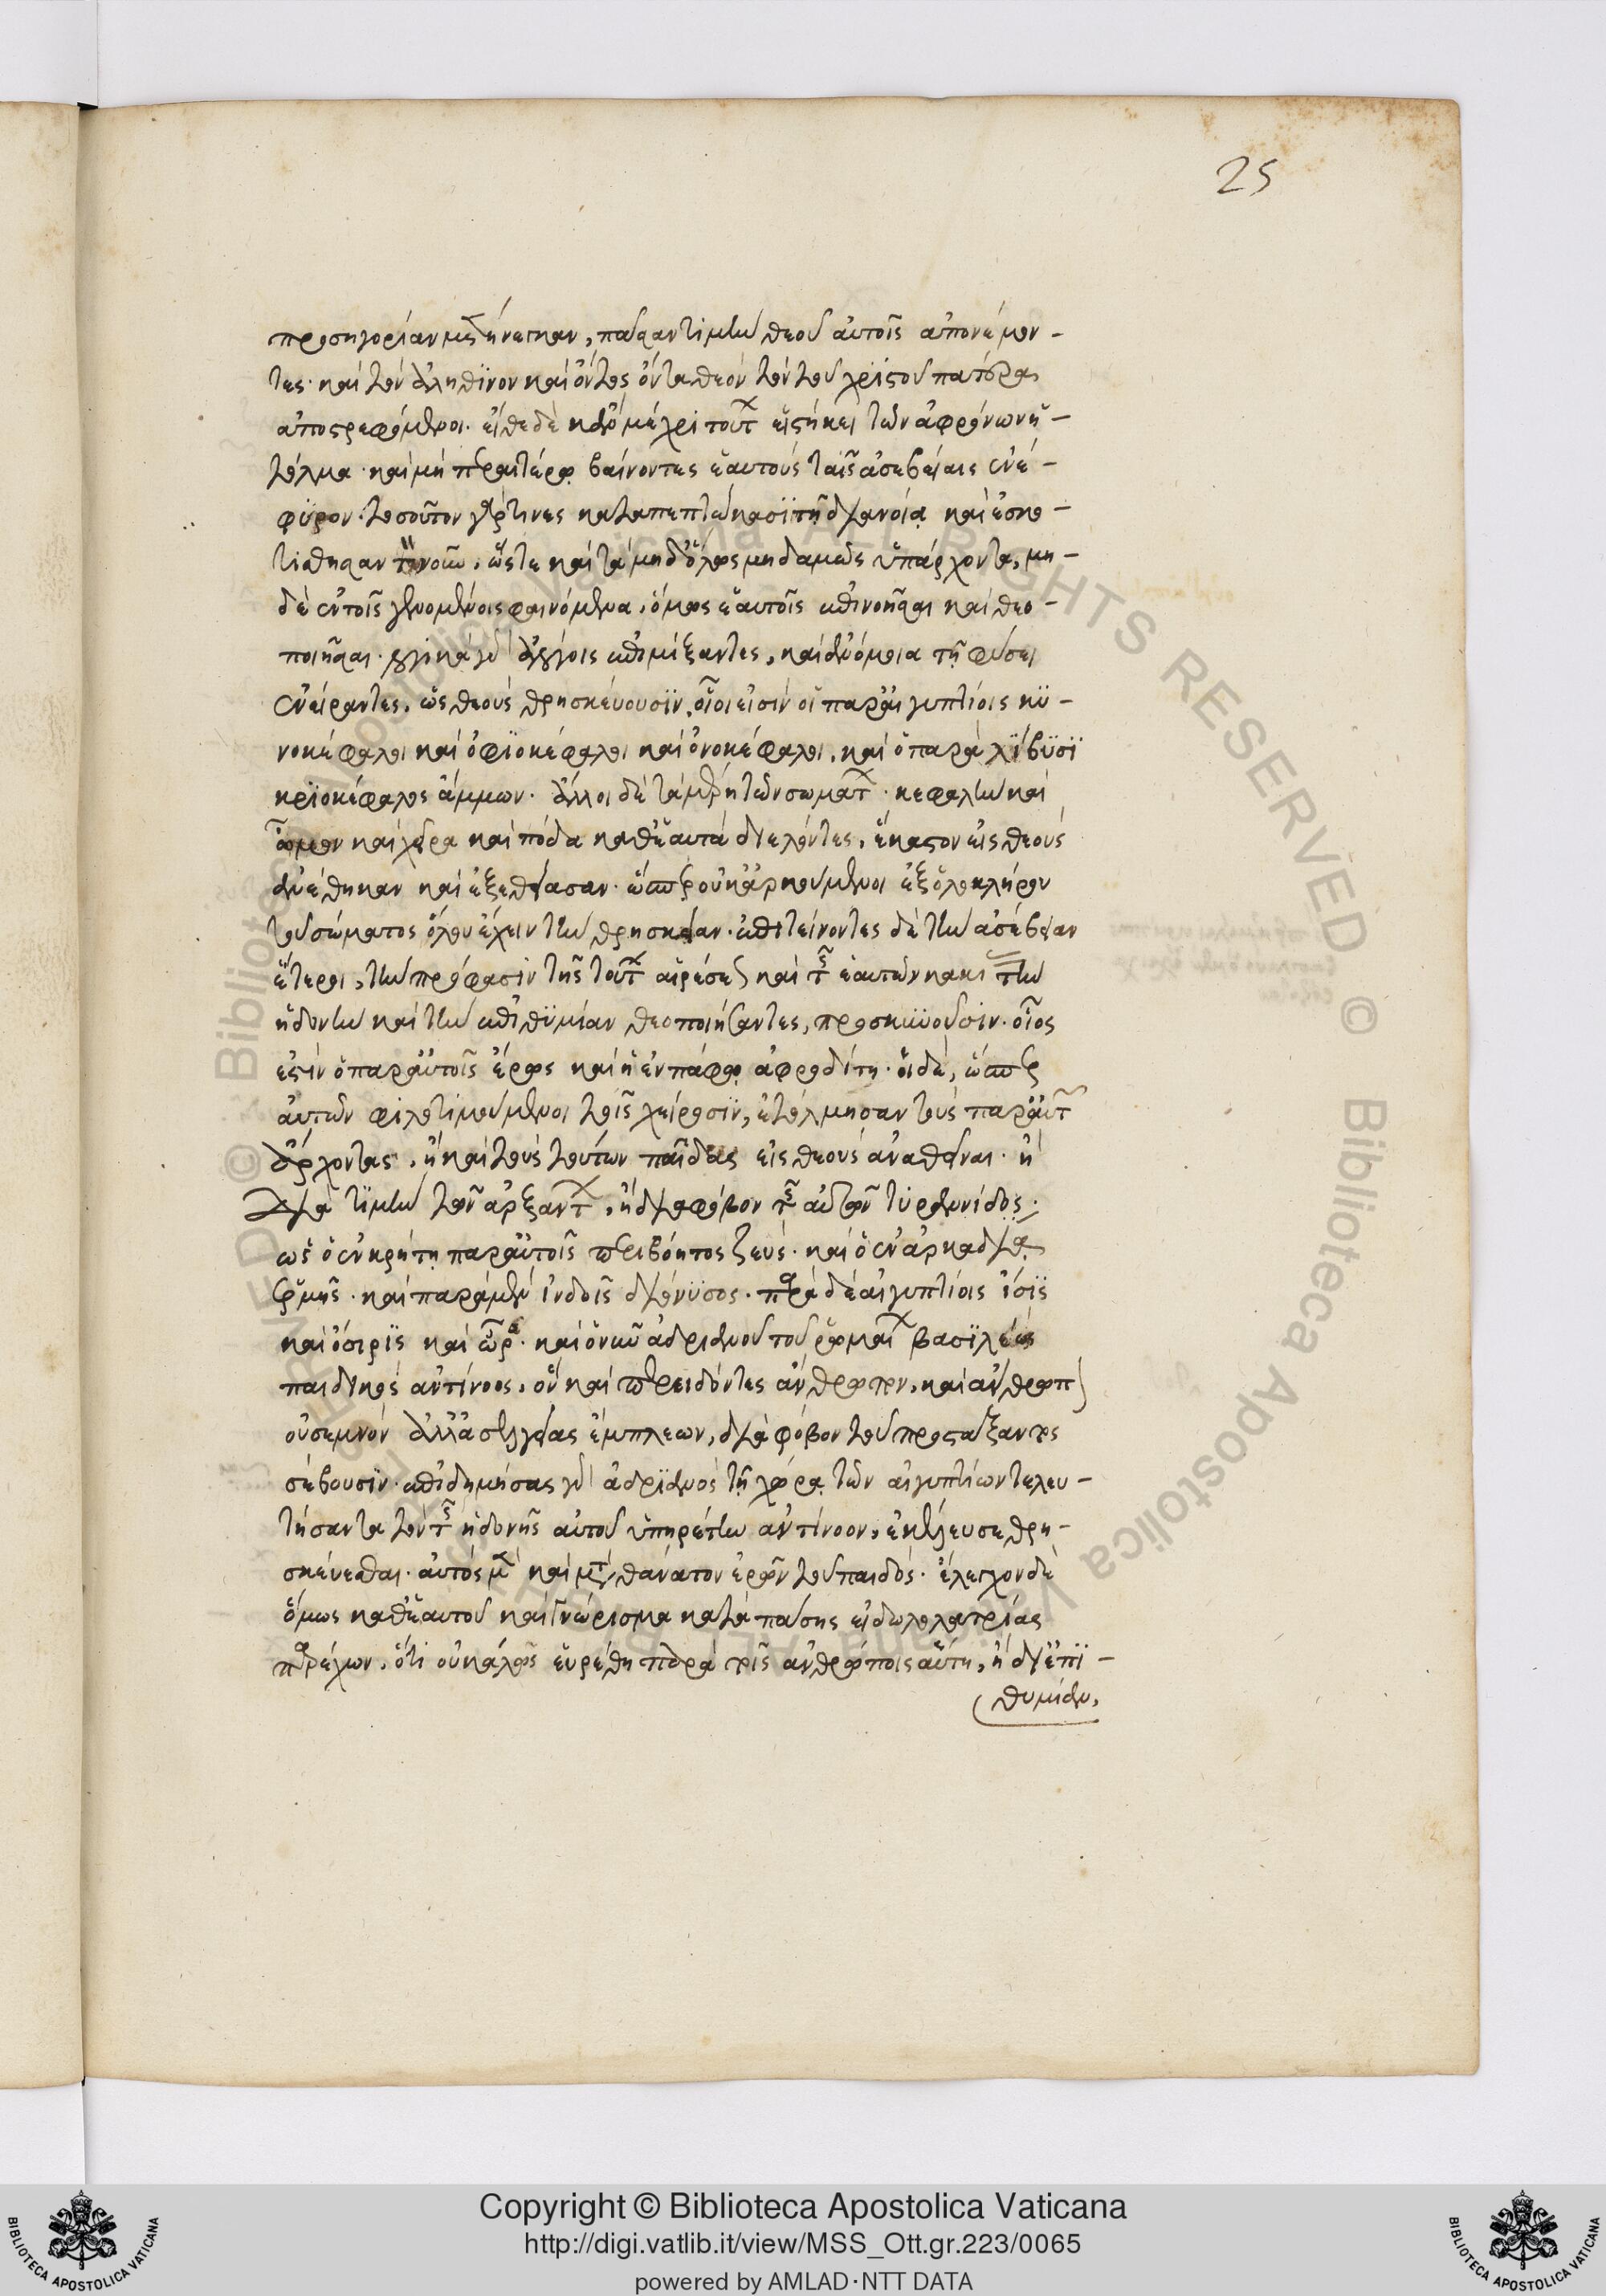 25
προσηγορίαν μετήνεγκαν, πᾶσαν τιμὴν θεοῦ αὐτοῖς ἀπονέμον-
τες· καὶ τὸν ἀληθινὸν καὶ ὄντως ὄντα θεὸν τὸν τοῦ χριστοῦ πατέρα
ἀποστρεφόμενοι. εἴθε δὲ κἂν μέχρι τούτων εἱστήκει τῶν ἀφρόνων ἡ-
τόλμα· καὶ μὴ περαιτέρω βαίνοντες ἑαυτοὺς ταῖς ἀσεβείαις ἐνέ-
φυρον. τοσοῦτον γάρ τινες καταπεπτώκασι τῇ διανοίᾳ καὶ ἐσκο-
τίσθησαν τὸν νοῦν, ὥστε καὶ τὰ μηδ' ὅλως μηδαμῶς ὑπάρχοντα, μη-
δὲ ἐν τοῖς γενομένοις φαινόμενα, ὅμως ἑαυτοῖς ἐπινοῆσαι καὶ θεο-
ποιῆσαι. λογικὰ γὰρ ἀλόγοις ἐπιμίξαντες, καὶ ἀνόμοια τῇ φύσει
ἐνείραντες, ὡς θεοὺς θρησκεύουσιν. οἷοι εἰσὶν οἱ παρ' αἰγυπτίοις κυ-
νοκέφαλοι καὶ ὀφιοκέφαλοι καὶ ὀνοκέφαλοι, καὶ ὁ παρὰ λίβυσι
κριοκέφαλος ἄμμων. ἄλλοι δὲ τὰ μέρη τῶν σωμάτων· κεφαλὴν καὶ
ὦμον καὶ χεῖρα καὶ πόδα καθ' ἑαυτὰ διελόντες, ἕκαστον εἰς θεοὺς
ἀνέθηκαν καὶ ἐξεθείασαν· ὥσπερ οὐκ ἀρκούμενοι ἐξ ὁλοκλήρου
τοῦ σώματος ὅλου ἔχειν τὴν θρησκείαν. ἐπιτείνοντες δὲ τὴν ἀσέβειαν
ἕτεροι, τὴν πρόφασιν τῆς τούτων εὑρέσεως καὶ τῆς ἑαυτῶν κακίας τὴν
ἡδονὴν καὶ τὴν ἐπιθυμίαν θεοποιήσαντες, προσκυνοῦσιν. οἷος
ἐστὶν ὁ παρ' αὐτοῖς ἔρως καὶ ἡ ἐν πάφῳ ἀφροδίτη. οἱ δὲ, ὥσπερ
αὐτῶν φιλοτιμούμενοι τοῖς χείροσιν, ἐτόλμησαν τοὺς παρ' αὐτῶν
ἄρχοντας, ἢ καὶ τοὺς τούτων παῖδας εἰς θεοὺς ἀναθεῖναι· ἢ
διὰ τιμὴν τῶν ἀρξάντων, ἢ διὰ φόβον τῆς αὐτῶν τυραννίδος·
ὡς ὁ ἐν κρήτῃ παρ' αὐτοῖς περιβόητος ζεύς· καὶ ὁ ἐν ἀρκαδίᾳ
ἑρμῆς· καὶ παρὰ μὲν ἰνδοῖς διόνυσος· παρὰ δὲ αἰγυπτίοις ἴσις
καὶ ὄσιρις καὶ ὧρος· καὶ ὁ νῦν ἀδριανοῦ τοῦ ῥωμαίων βασιλέως
παιδικὸς ἀντίνοος, ὃν καὶ περ εἰδότες ἄνθρωπον, καὶ ἄνθρωπον
οὐ σεμνὸν ἀλλ' ἀσελγείας ἔμπλεων, διὰ φόβον τοῦ προστάξαντος
σέβουσιν. ἐπιδημήσας γὰρ ἀδριανὸς τῇ χώρᾳ τῶν αἰγυπτίων τελευ-
τήσαντα τὸν τῆς ἡδονῆς αὐτοῦ ὑπηρέτην ἀντίνοον, ἐκέλευσε θρη-
σκεύεσθαι. αὐτὸς μὲν καὶ μετὰ θάνατον ἐρῶν τοῦ παιδός· ἔλεγχον δὲ
ὅμως καθ' ἑαυτοῦ καὶ γνώρισμα κατὰ πάσης εἰδωλολατρίας
παρέχων, ὅτι οὐκ ἄλλως εὑρέθη παρὰ τοῖς ἀνθρώποις αὕτη, ἢ δι' ἐπι-
θυμίαν,
Copyright © Biblioteca Apostolica Vaticana
http://digi.vatlib.it/view/MSS_Ott.gr.223/0065
powered by AMLAD·NTT DATA